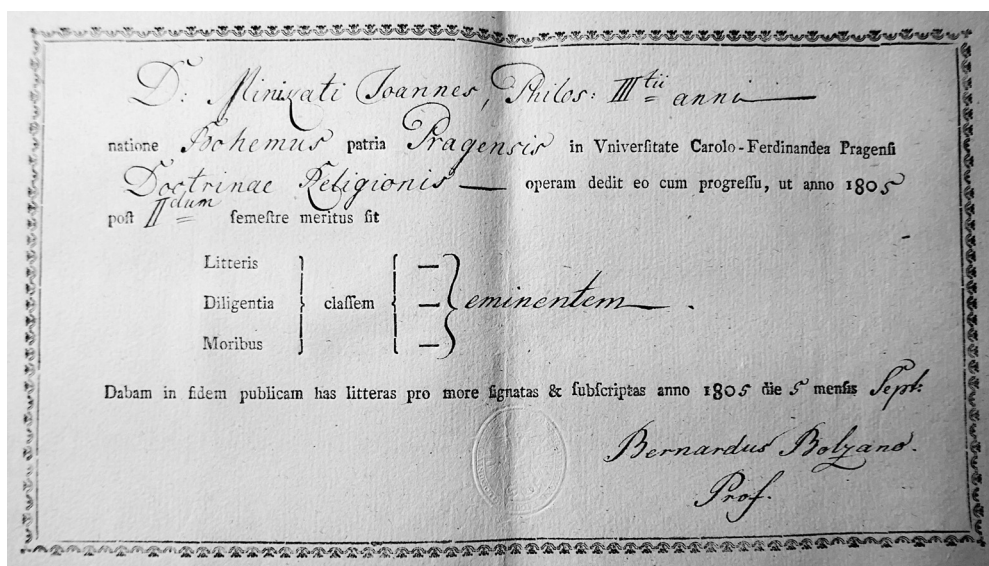 D: Minizati Joannes, Philos: III^tii anni
natione Bohemus patria Pragensis in Vniverſitate Carolo-Ferdinandea Pragenſi
Doctrinae Religionis — operam dedit eo cum progreſſu, ut anno 1805
poſt II^dum ſemeſtre meritus ſit
Litteris
Diligentia } claſſem { — } eminentem — .
Moribus
Dabam in fidem publicam has litteras pro more ſignatas & ſubſcriptas anno 1805 die 5 menſis Sept:
Bernardus Bolzano.
Prof.